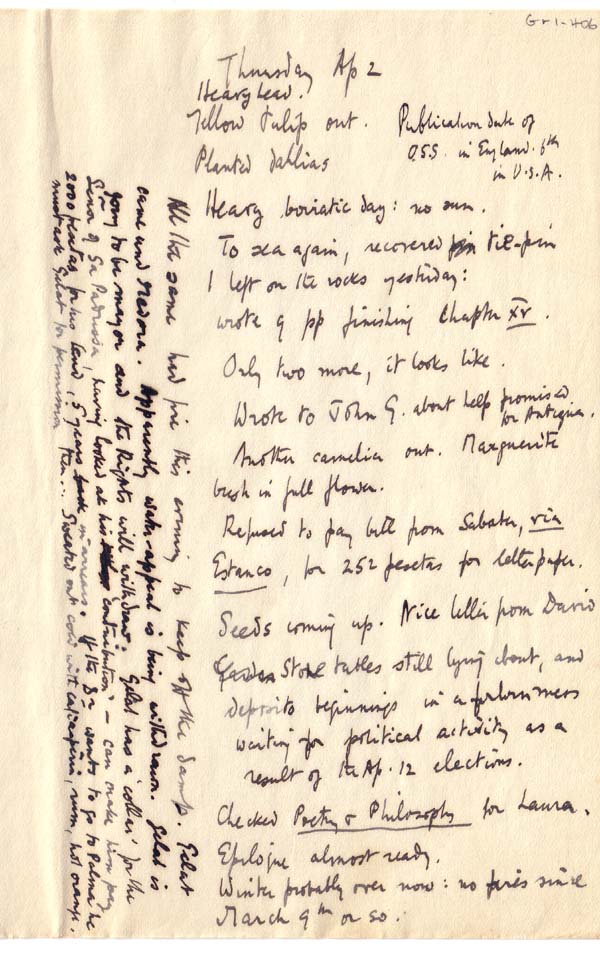 Gr1-406
Thursday Ap 2
Heavy head.
Yellow tulip out.
Planted dahlias
Publication date of
O.S.S. in England. 6th
in U.S.A.
Heavy boriatic day: no sun.
To sea again, recovered tie-pin
I left on the rocks yesterday:
wrote 9 pp finishing Chapter XV.
Only two more, it looks like.
Wrote to John G. about help promised
for Antigua.
Another camelia out. Marguerite
bush in full flower.
Refused to pay bill from Sabater, via
Estanco, for 252 pesetas for letterpaper.
Seeds coming up. Nice letter from David
Garden Stone tables still lying about, and
deposito beginnings in a forlornness
waiting for political activity as a
result of the Ap. 12 elections.
Checked Poetry & Philosophy for Laura.
Epilogue almost ready.
Winter probably over now: no fires since
March 9th or so.
All the same had fire this evening to keep off the damp. Gelat
came and Medora. Apparently water-appeal is being withdrawn. Gelat is
going to be mayor and the Rights will withdraw: Gelat has a 'collar' for the
Señor of Sa Pedrussa, having looked at his 'contribution' – can make him pay
2000 pesetas for his land, 5 years in arrears. If the Sr wants to go to Palma he
must ask Gelat for permission then... Sweated out cold with cafiaspirin, rum, hot orange.